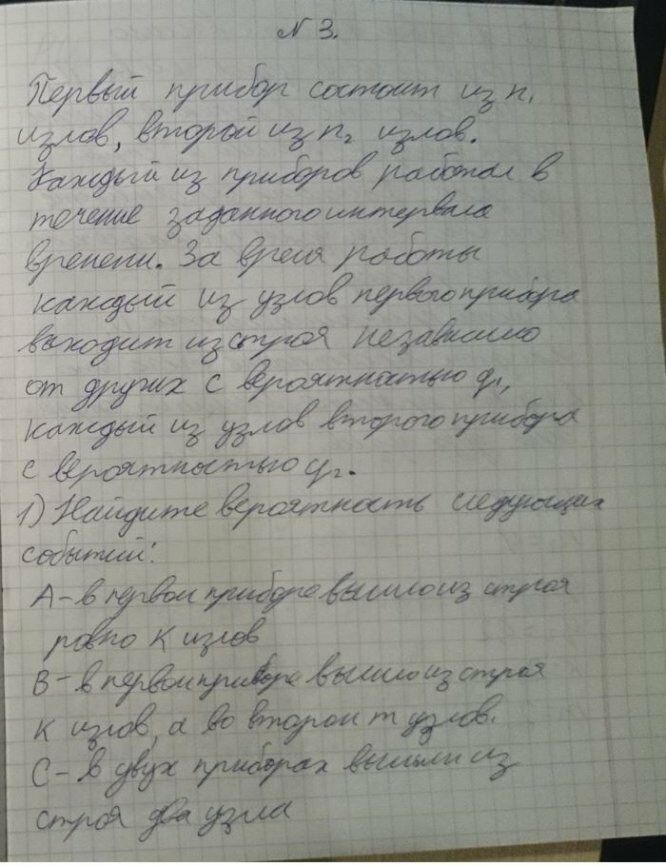 № 3.
Первый прибор состоит из n₁
узлов, второй из n₂ узлов.
Каждый из приборов работал в
течение заданного интервала
времени. За время работы
каждый из узлов первого прибора
выходит из строя независимо
от других с вероятностью q₁,
каждый из узлов второго прибора
с вероятностью q₂.
1) Найдите вероятность следующих
событий:
А – в первом приборе вышло из строя
ровно К узлов
В – в первом приборе вышло из строя
К узлов, а во втором m узлов.
С – в двух приборах вышли из
строя два узла